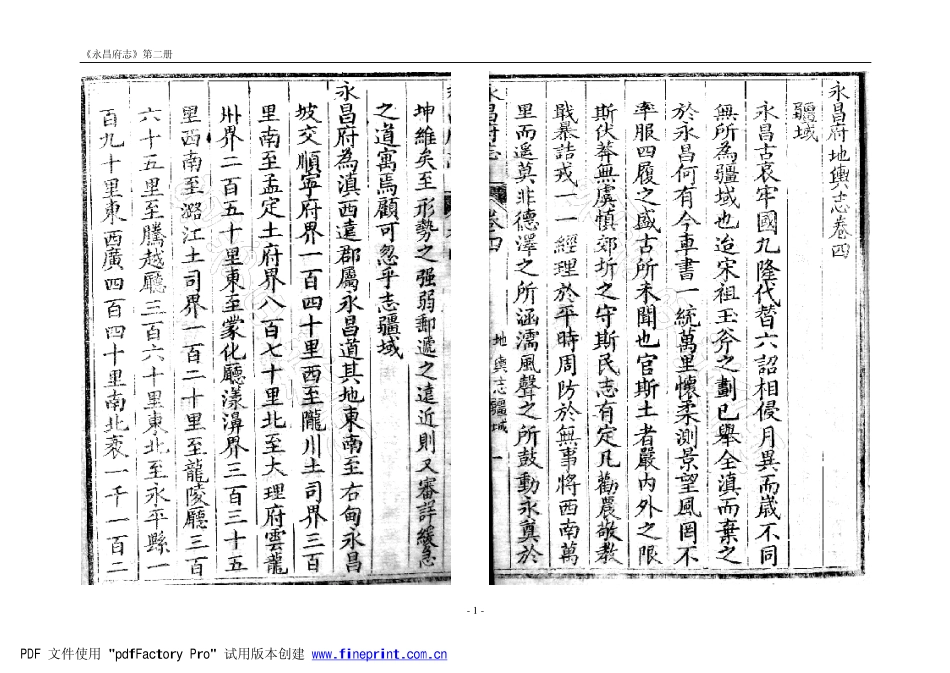 《永昌府志》第二册
永昌府地輿志卷四
疆域
永昌古哀牢國九隆代替六詔相侵月異而歲不同
無所為疆域也迨宋祖玉斧之劃已舉全滇而棄之
於永昌何有今車書一統萬里懷柔測景望風罔不
率服四履之盛古所未聞也官斯土者嚴內外之限
斯伏莽無虞慎郊圻之守斯民志有定凡勸農敬教
戢暴詰戎一一經理於平時周防於無事將西南萬
里而遥莫非德澤之所涵濡風聲之所鼓動永奠於
永昌府志
卷四
地輿志疆域
一
坤維矣至形勢之强弱郵遞之遠近則又審詳緩急
之道寓焉顧可忽乎志疆域
永昌府為滇西遠郡屬永昌道其地東南至右甸永昌
坡交順寧府界一百四十里西至隴川土司界三百
里南至孟定土府界八百七十里北至大理府雲龍
州界二百五十里東至蒙化廳漾濞界三百三十五
里西南至潞江土司界一百二十里至龍陵廳三百
六十五里至騰越廳三百六十里東北至永平縣一
百九十里東西廣四百四十里南北袤一千一百二
- 1 -
PDF 文件使用 "pdfFactory Pro" 试用版本创建 www.fineprint.com.cn